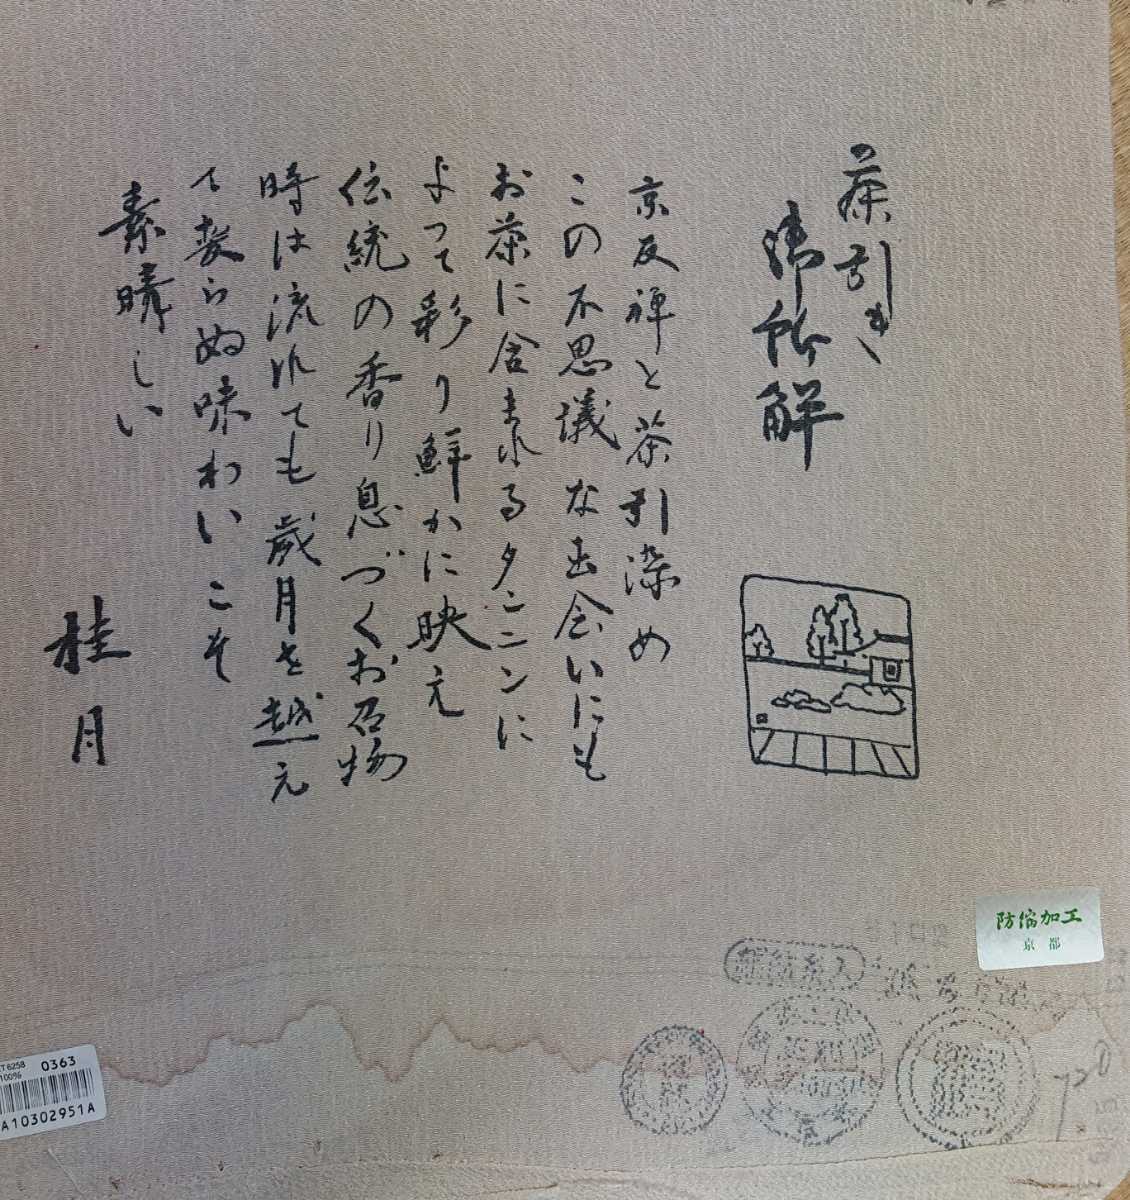 茶引き
御所解
京友禅と茶引染め
この不思議な出会いにも
お茶に含まれるタンニンに
よって彩り鮮かに映え
伝統の香り息づくお召物
時は流れても歳月を越え
て変らぬ味わいこそ
素晴しい
桂月
防縮加工
京都
T6258 0363
100%
A10302951A